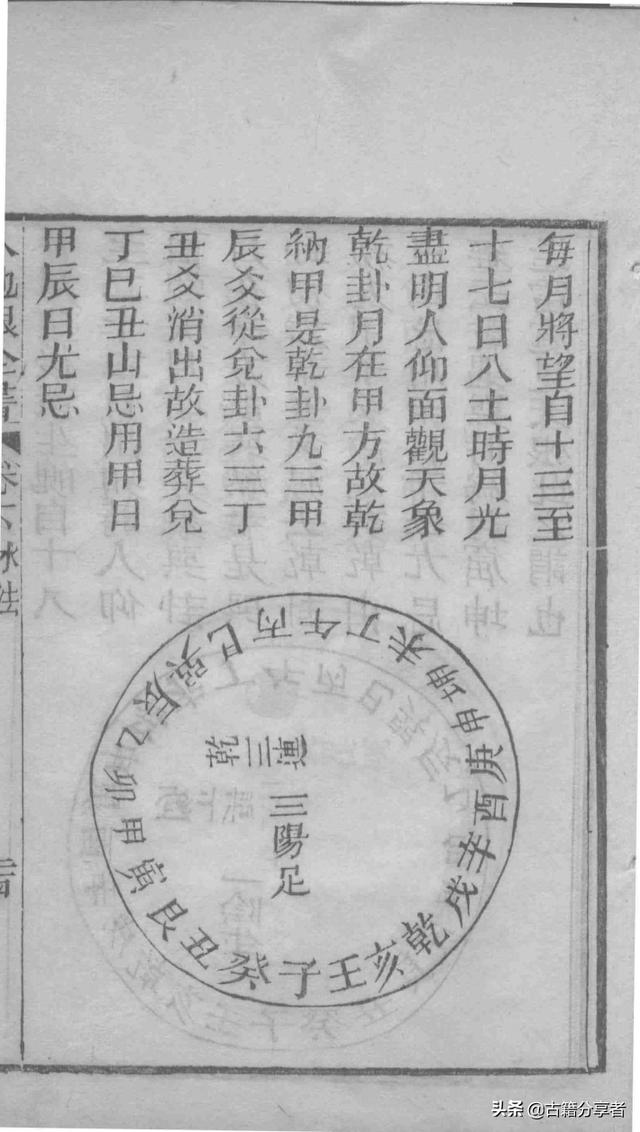 每月將望自十三至
十七日入土時月光
盡明人仰面觀天象
乾卦月在甲方故乾
納甲是乾卦九三甲
辰爻從兌卦六三丁
丑爻消出故造葬兌
丁巳丑山忌用甲日
甲辰日尤忌
乾三連
三陽足
午丁未坤申庚酉辛戌乾亥壬子癸丑艮寅甲卯乙辰巽巳丙
卷六
頭条 @古籍分享者